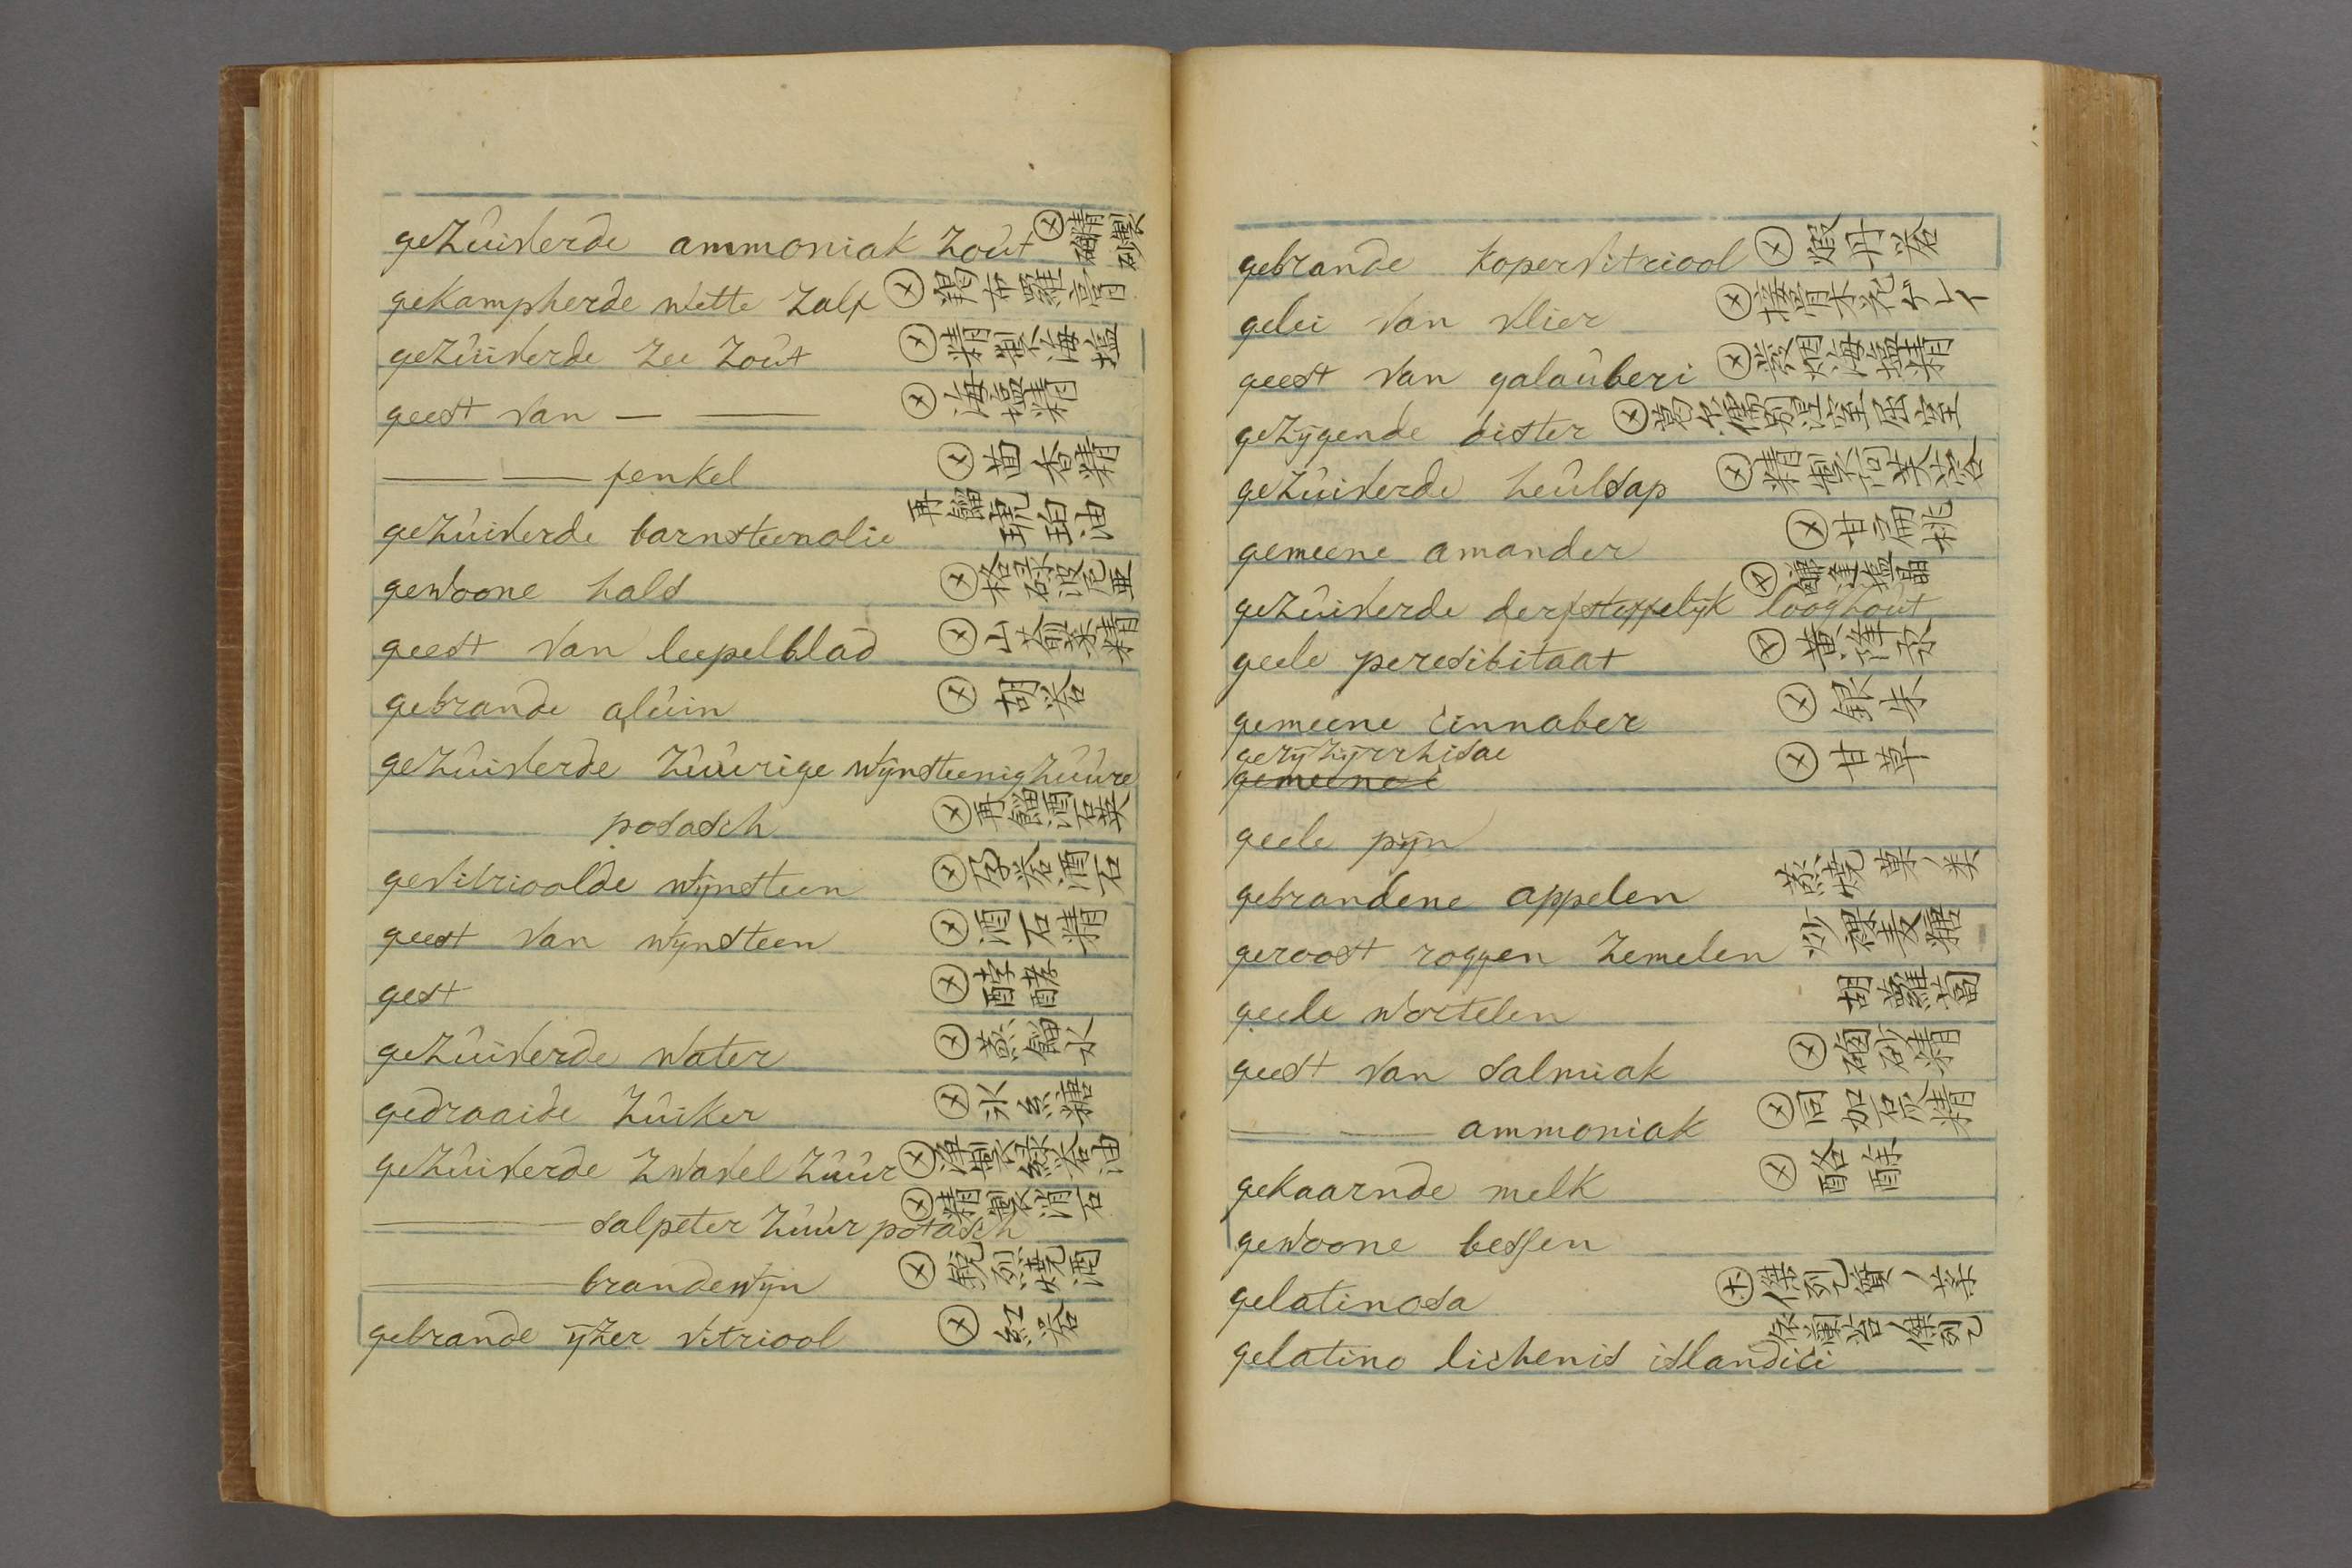 geZûiverde ammoniak Zoût ⊗ 精製磠砂
gekampherde vette Zalf ⊗ 羯布羅膏
geZûiverde Zee Zoût ⊗ 精製海塩
geest van — — ⊗ 海塩精
— — fenkel ⊗ 茴香精
geZûiverde barnsteenolie 再餾琥珀油
gewoone hals ⊗
geest van leepelblad ⊗ 山葵精
gebrande alûin ⊗ 胡礬
geZûiverde Zûûrige wÿnsteenigZûûre
posasch ⊗ 再餾酒石英
gevitrioolde wÿnsteen ⊗ 礬酒石
geest van wÿnsteen ⊗ 酒石精
gest ⊗ 酵醭
geZûiverde water ⊗ 蒸餾水
gedraaide Zûiker ⊗ 氷糖
geZûiverde Zwavel Zûûr ⊗ 浄製緑礬油
— salpeter Zûûr potasch ⊗ 精製消石
— brandewÿn ⊗ 鋭烈焼酒
gebrande ÿZer vitriool ⊗ 紅礬
gebrande kopervitriool ⊗ 煆丹礬
gelei van vlier ⊗ 接骨木花ゲレイ
geest van galaûberi ⊗ 発烟海塩精
geZÿgende bister ⊗
geZûiverde heûlsap ⊗ 精製阿芙蓉
gemeene amander ⊗ 甘扁桃
geZûiverde derfsteffelÿk looghoût ⊗
geele peresibitaat ⊗ 黄降汞
gemeene cinnaber ⊗ 銀朱
gerÿZÿrrhisae ⊗ 甘草
gemeene
geele pÿn
gebrandene appelen 蒸焼菓ノ実
geroost roggen Zemelen 炒裸麦糠
geele wortelen 胡蘿蔔
geest van salmiak ⊗ 磠砂精
— — ammoniak ⊗ 同加石灰精
gekaarnde melk ⊗ 酪酥
gewoone bessen
gelatinosa
gelatino lichenis islandici 依蘭苔ノ傑列乙